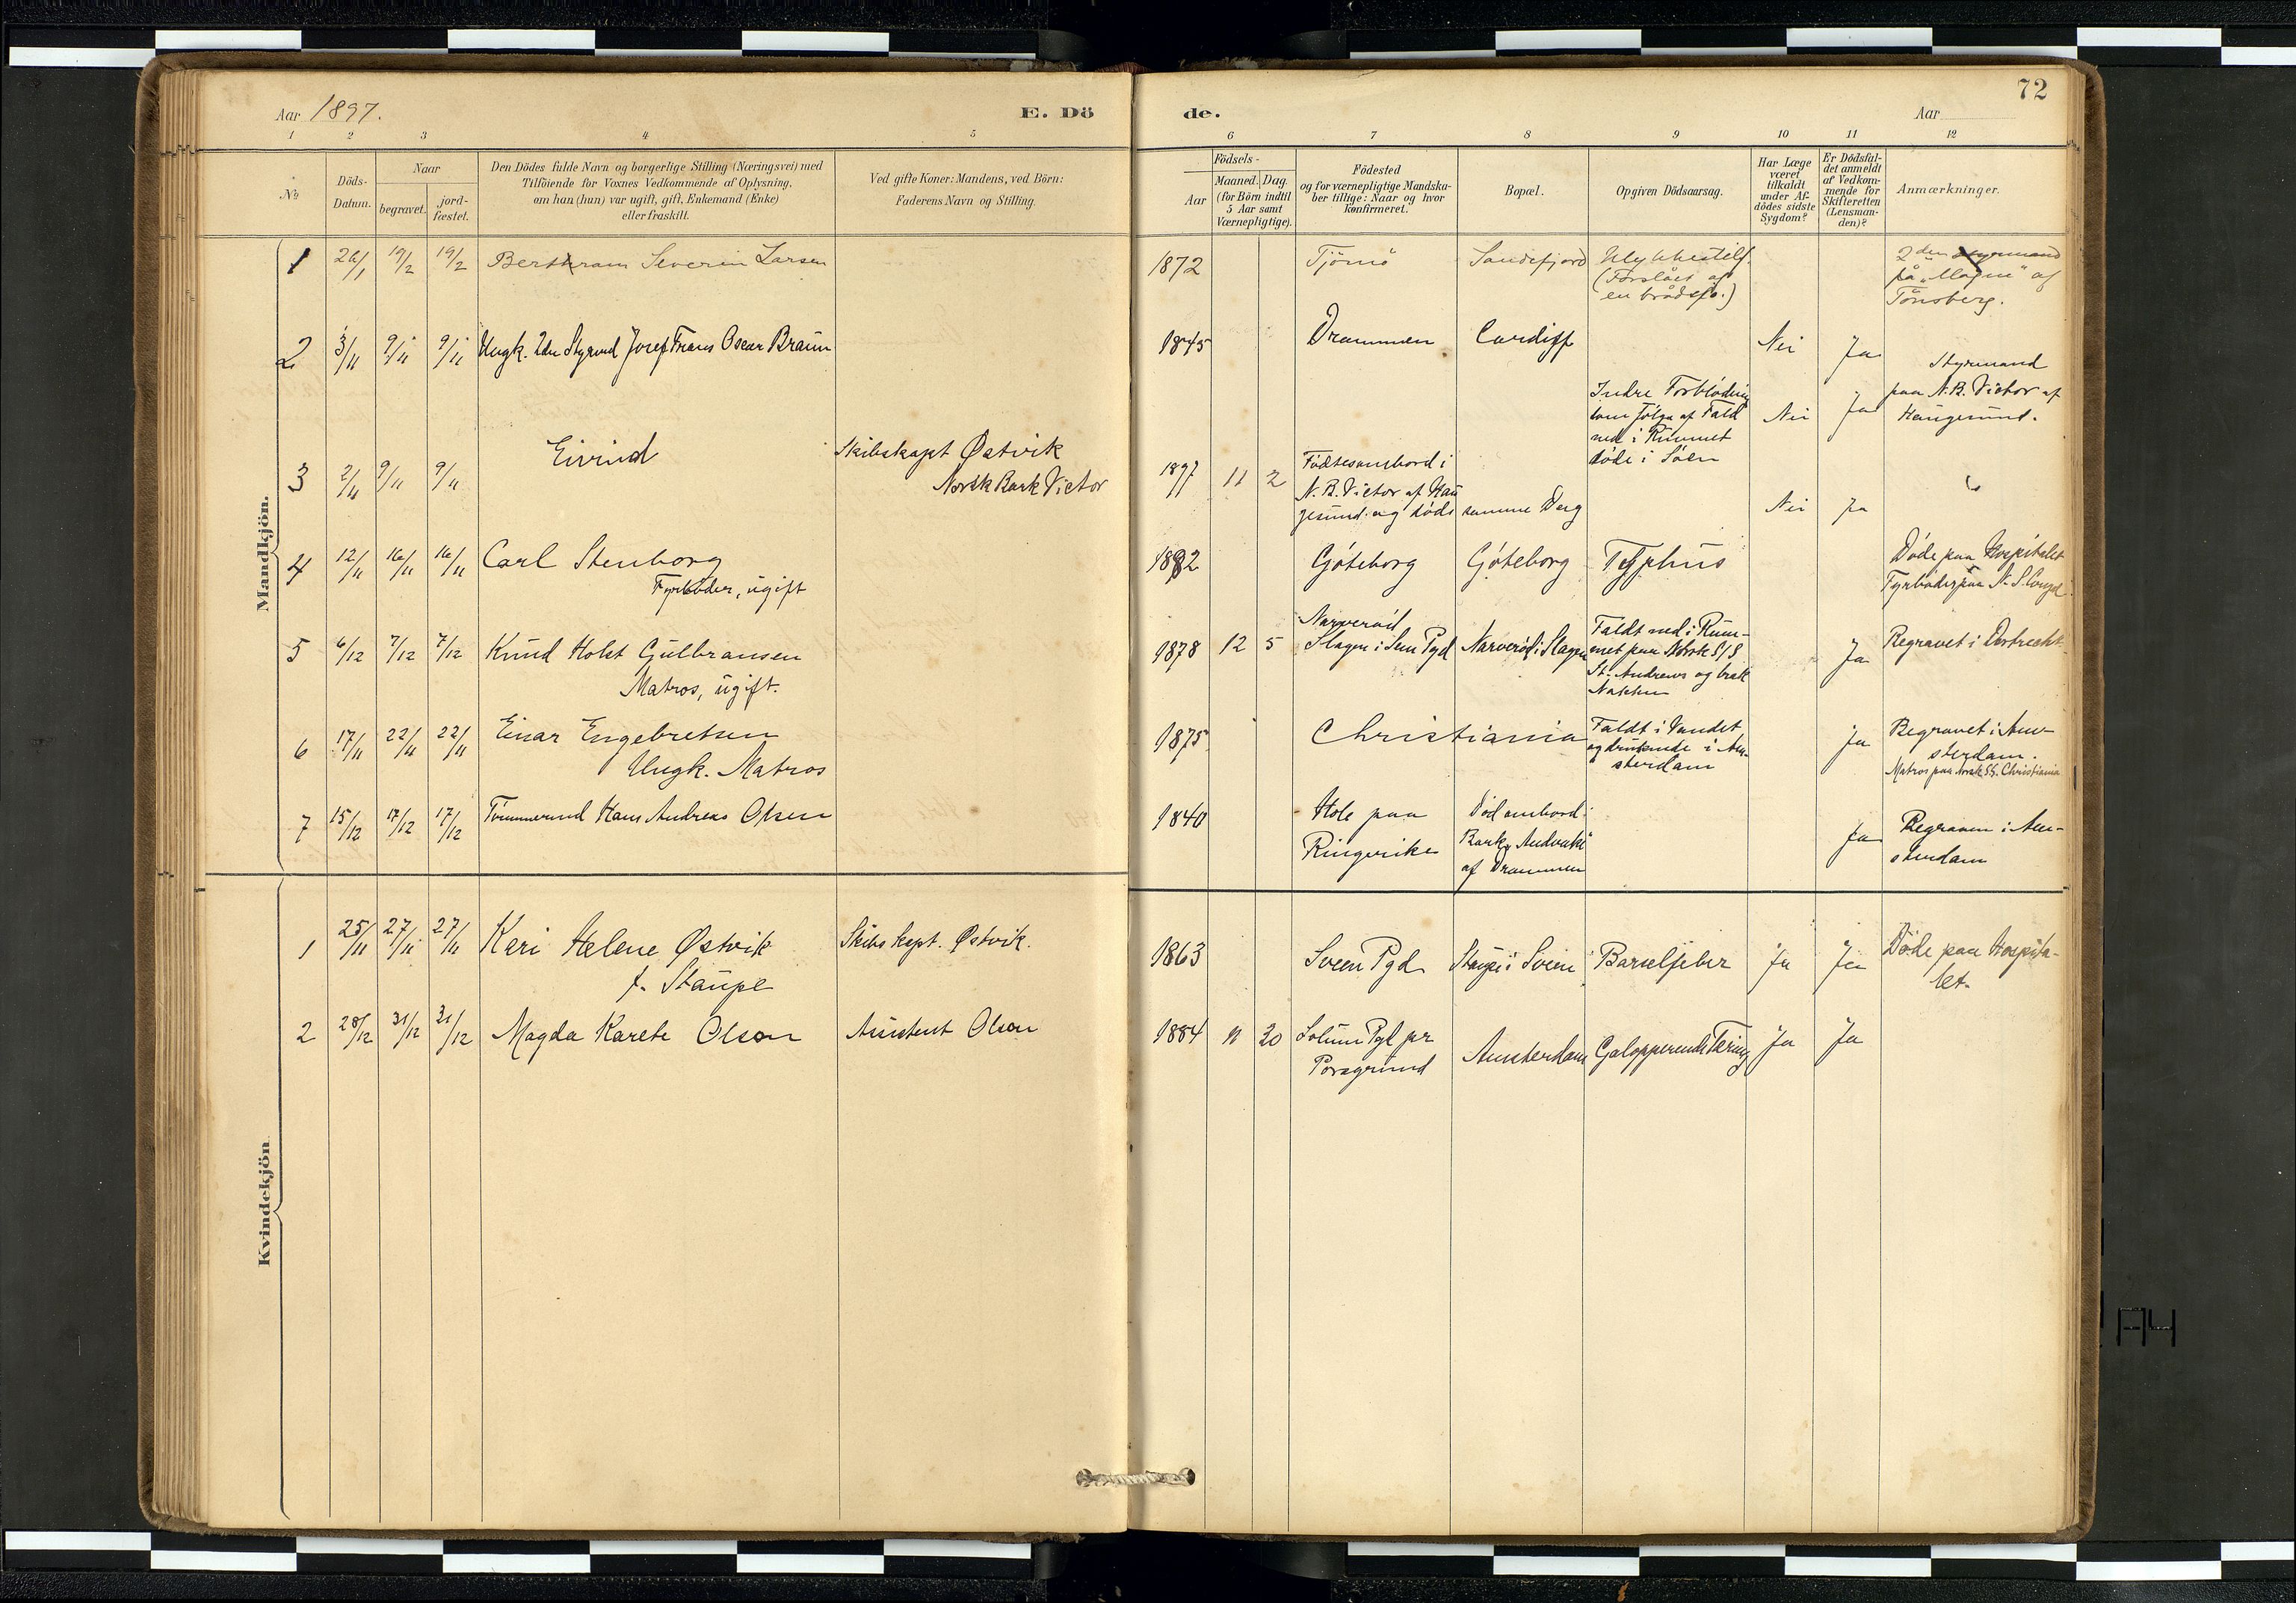 72
Aar 1897.
E. Dö
de.
Aar
1 2 3 4 5
6 7 8 9 10 11 12
No
Döds-
Datum.
Naar
begravet.
jord-
fæstet.
Den Dödes fulde Navn og borgerlige Stilling (Næringsvei) med
Tilföiende for Voxnes Vedkommende af Oplysning,
om han (hun) var ugift, gift, Enkemand (Enke)
eller fraskilt.
Ved gifte Koner: Mandens, ved Börn:
Faderens Navn og Stilling.
Födsels-
Aar
Maaned. Dag
(for Börn indtil
5 Aar samt
Værnepligtige).
Födested
og for værnepligtige Mandska-
ber tillige: Naar og hvor
konfirmeret.
Bopæl.
Opgiven Dödsaarsag.
Har Læge
været
tilkaldt
under Af-
dödes sidste
Sygdom?
Er Dödsfal-
det anmeldt
af Vedkom-
mende for
Skifteretten
(Lensman-
den)?
Anmærkninger.
Mandkjön.
1 26/1 19/2 19/2 Berthram Severin Larsen
1872 Tjömö Sandefjord Ulykkestilf.
(Forslået af
en brådsjö.)
2den Styrmand
på „Magne" af
Tönsberg.
2 3/11 9/11 9/11 Ungk. 2den Styrmd Josef Frans Oscar Braun
1845 Drammen Cardiff Nei Ja
Indre Forblödning
som Fölge af Fald
ned i Rummet
döde i Söen
Nei Ja
Styrmand
paa N.B. Victor af
Haugesund.
3 2/11 9/11 9/11 Eivind
Skibskapt Østvik
Norsk Bark Victor
1897 11 2 Födtes ombord i
N. B. Victor af Hau
gesund og döde samme Dag Nei Ja
4 12/11 16/11 16/11 Carl Stenborg
Fyrböder, ugift
1892 Göteborg Göteborg Typhus
Döde paa Hospitalet
Fyrböder paa N. S.
5 6/12 7/12 7/12 Knud Holst Gulbransen
Matros, ugift.
1878 12 5 Narveröd
Slagen i Sem Pgd Narveröd i Slagen
Faldt ned i Rum-
met paa Norsk S/S
St. Andrews og brak
Nakken
Ja
Begravet i Dortrecht
6 17/11 22/11 22/11 Einar Engebretsen
Ungk. Matros
1875 Christiania
Faldt i Vandet
og druknede i Am-
sterdam
Ja
Begravet i Am-
sterdam.
Matros paa Norsk SS. Christiania
7 15/12 17/12 17/12 Tömmermd Hans Andreas Olsen
1840 Hole paa
Ringerike
Död ombord i
Bark „Andvake"
af Drammen
Ja
Begraven i Am-
sterdam
Kvindekjön
1 25/11 27/11 27/11 Kari Helene Østvik
f. Staupe
Skibs kapt. Østvik.
1863 Sveen Pgd Staupe i Sveen Barselfeber Ja Ja
Döde paa Hospita-
let.
2 28/12 31/12 31/12 Magda Karete Olson
Assistent Olson
1884 11 20 Solum Pgd pr
Porsgrund
Amsterdam Galopperende Tæring Ja Ja